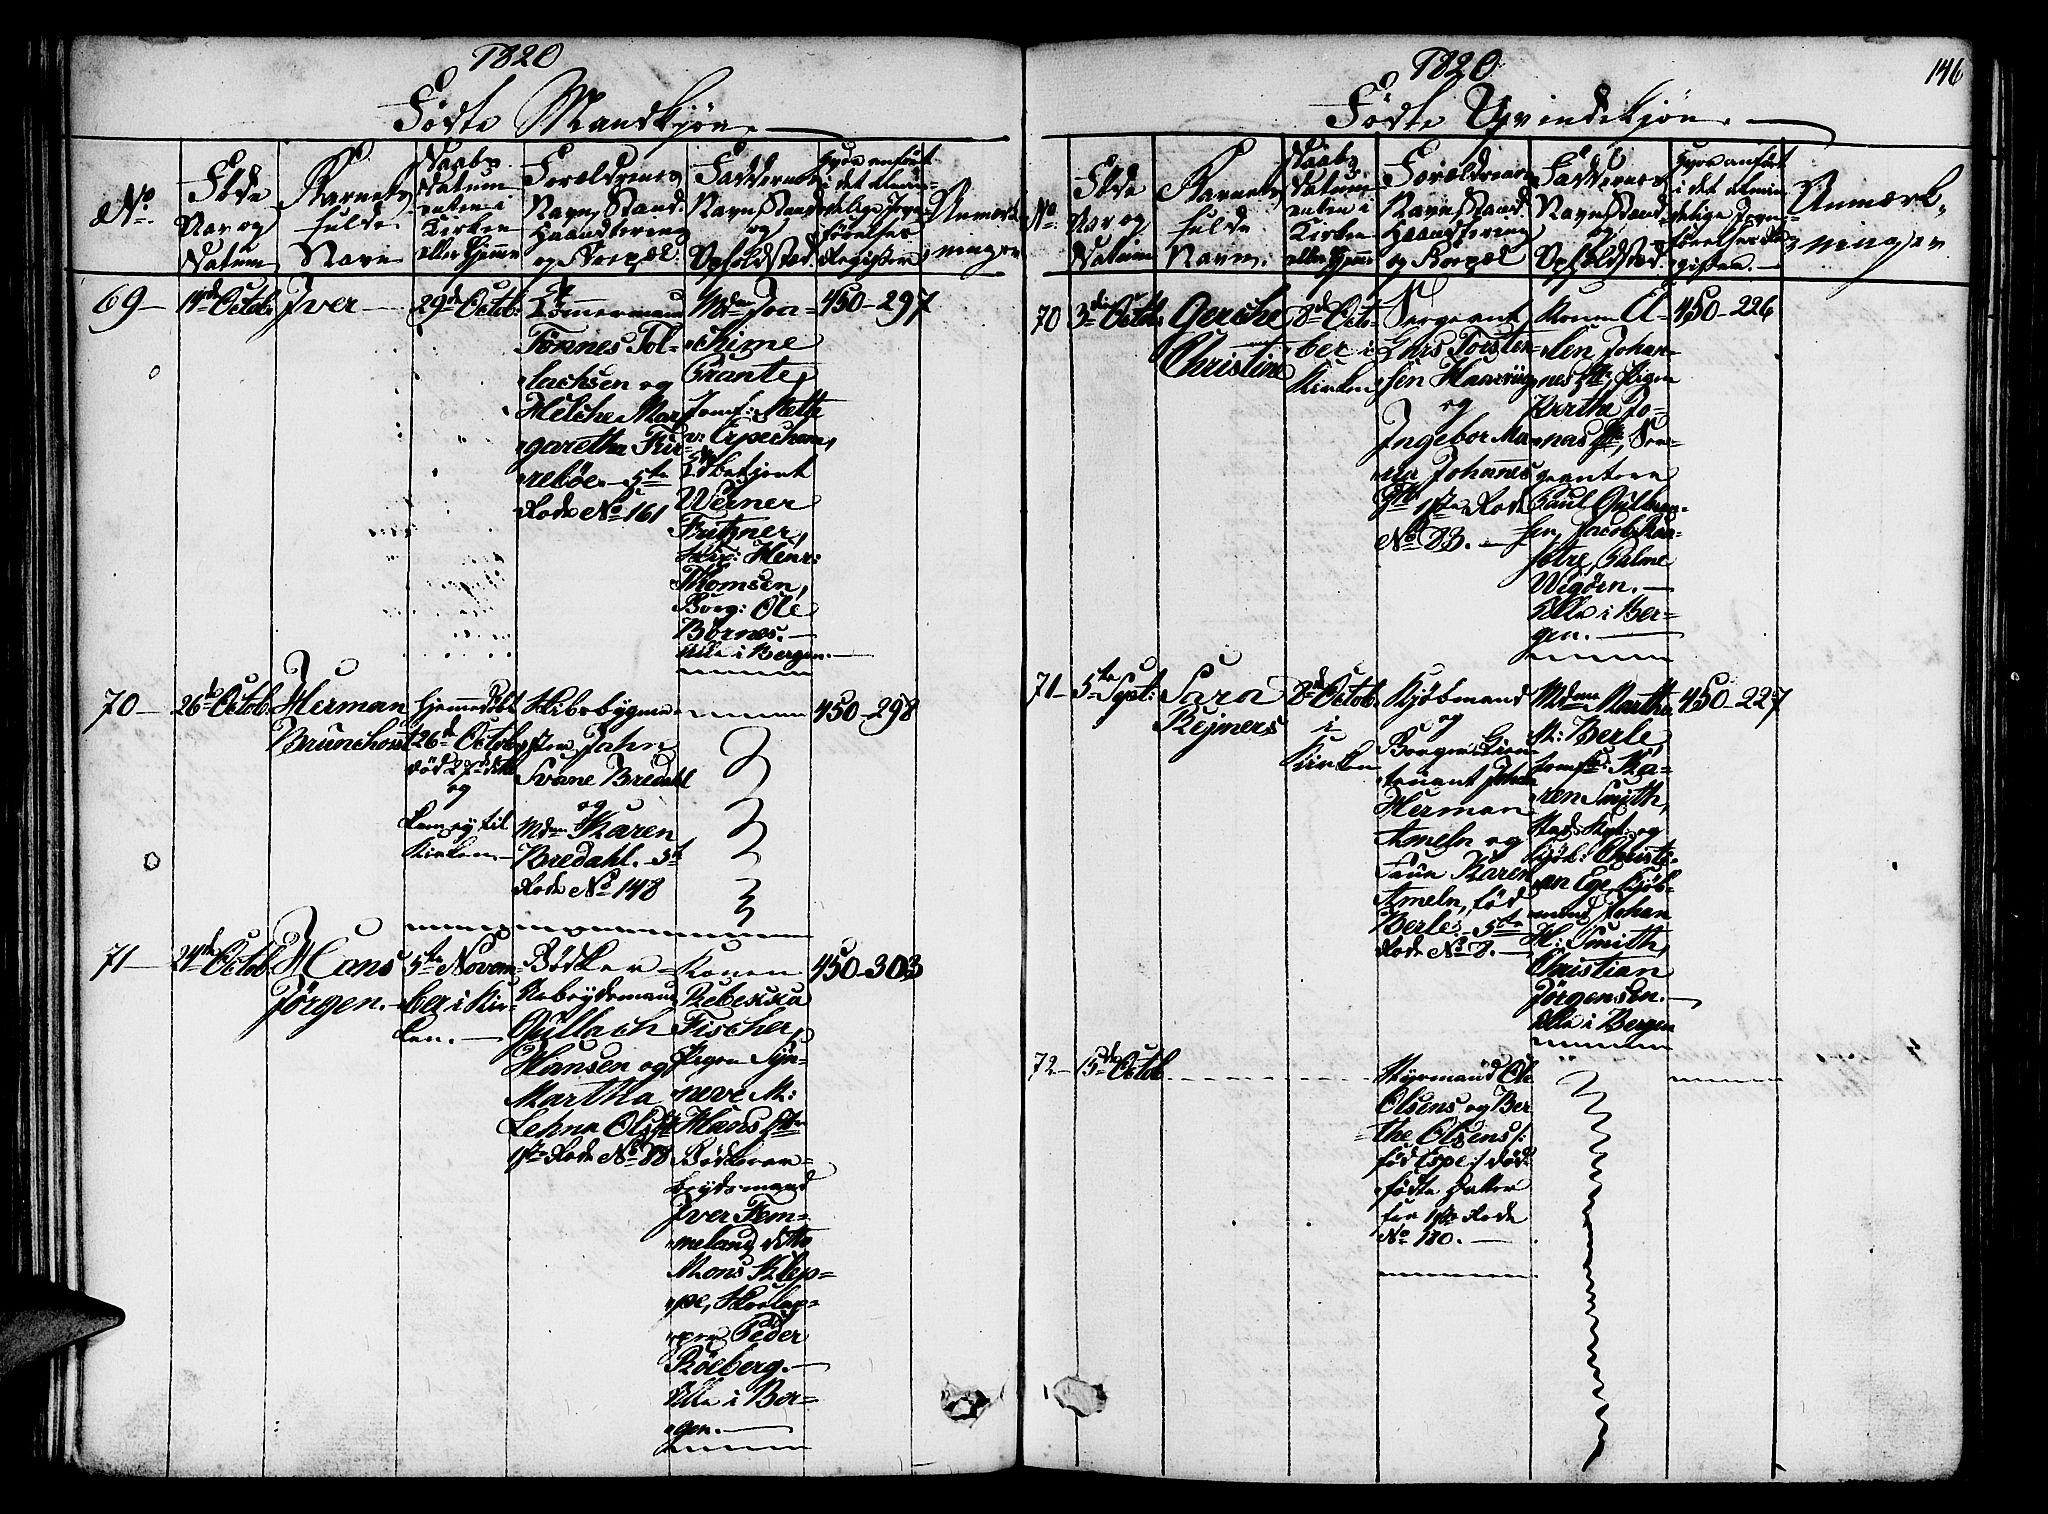 1820
Fødte Mandkjøn.
No.
Føde
Aar og
Datum
Barnets
fulde
Navn
Daabs
Datum
enten i
Kirken
eller Hjemme
Forældrenes
Navn, Stand
Haandtering
og Bopæl
Faddernes
Navn, Stand
og
Opholdsted
Hvor anført
i det almin-
delige Jevn-
førelses
Register
Anmærk-
ninger
69 –
14de Octob:
Iver –
29de Octob:
Tømmermand
Tønnes Tol-
lachsen og
Helche Mar-
garetha Fir-
reböe. 5te
Rode No 161
Mdm Joa-
chime
Grante,
Jomf: Mette
Werner
Fritzner,
Henr:
Thomsen,
Borg: Ole
Börnes. –
Alle i Bergen. –
450 – 297
70 –
26de Octob:
Herman
Brunchost
Hjemmedøbt
26de Octob:
død 27de ditto
og
kom ey til
Kirken. –
Skibsbygme-
ster Jahn
Svane Bredahl
og
Mdm Karen
Bredahl. 5te
Rode No 148
450 – 298
71 –
24de Octob:
Hans
Jörgen. –
5te Novem-
ber i Kir-
ken. –
Bödker-
Arbeydsmand
Gullach
Hansen og
Martha
Lehna Olsdtr
17de Rode No 88
Konen
Rebekka
Fischer,
Pigen Syn-
neve M:
Hans Dtr
Bödkerar-
beydsmand
Iver Fem-
meland, ditto
Mons Klep-
pe, Skoelap-
per Peder
Röeberg. –
Alle i Ber-
gen. –
450 – 303
1820
146
Fødte Qvindekjøn.
No.
Føde
Aar og
Datum
Barnets
fulde
Navn.
Daabs
Datum
enten i
Kirken
eller Hjemme
Forældrenes
Navn, Stand
Haandtering
og Bopæl
Faddernes
Navn, Stand
og
Opholdsted.
Hvor anført
i det almin-
delige Jevn-
førelses Re-
gister. –
Anmærk-
ninger
70
3de Octob:
Gerche
Christine
8de Octo-
ber i
Kirken
Sergeant
Lars Torsten-
sen Haarvig
og
Ingebor Ma-
ria Johannes
Dtr 17de Rode
No 83. –
Konen E-
len Johan-
nes Dtr, Pigen
Berthe Jo-
nas Dtr, Ser-
geanterne
Paul Gulbran-
sen, Jacob
Palme
Wigörn. –
Alle i Ber-
gen. –
450 – 226
71 –
5te Sept:
Sara
Rejners
8de Octob:
i
Kirken
Kjöbmand
og
Borger-Lieu-
tenant Johan
Herman
Ameln og
Frue Karen
Ameln, född
Berle. – 5te
Rode No 8. –
Mdm Martha
M: Berle,
Jomfr: Ka-
ren Smith,
og
Kjöb: Christi-
an Ege, Kjöb-
mand Johan
H: Smith,
Christian
Jörgensen. –
Alle i Bergen
450 – 227
72 –
15de Octob:
Styrmand Ole
Olsens og Ber-
the Olsens /:
föd Espe :/ död-
födte Datter
No 180. –